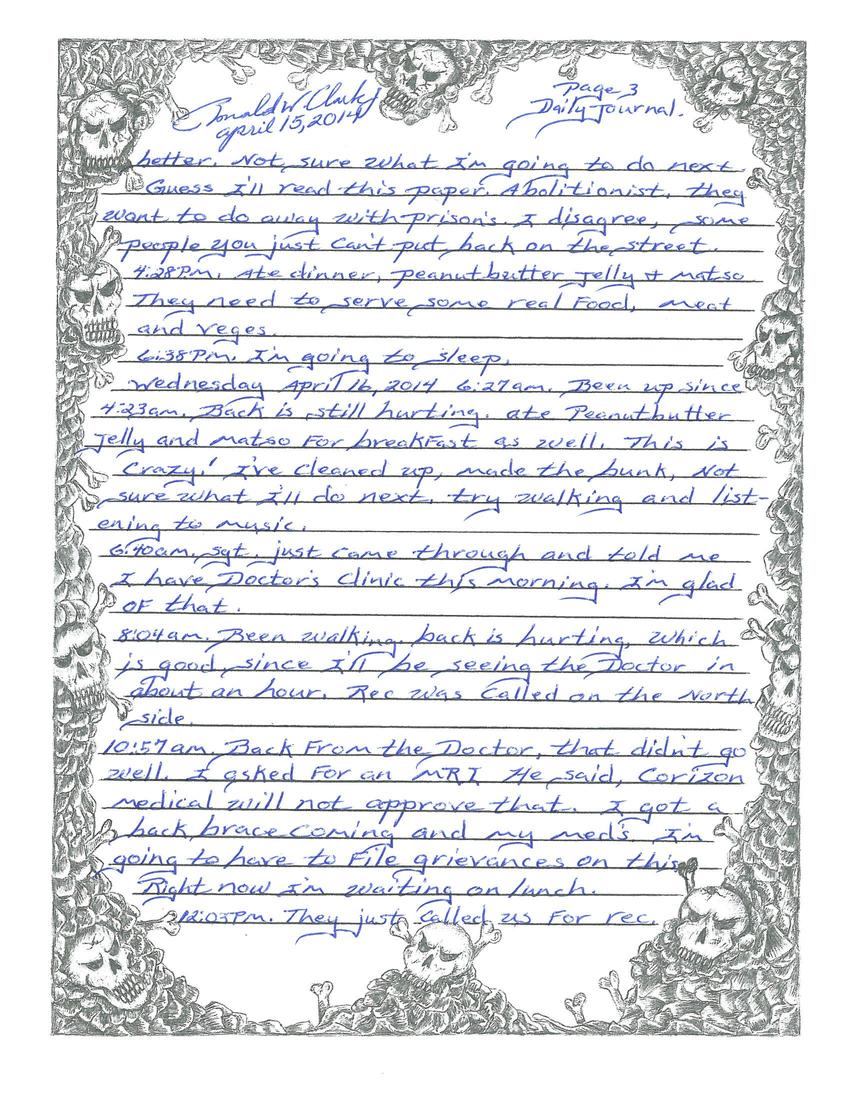 Ronald W. Clark Jr
april 15, 2014
Page 3
Daily Journal.
better. Not sure what I'm going to do next.
Guess I'll read this paper. Abolitionist, they
want to do away with prison's. I disagree, some
people you just can't put back on the street.
4:28Pm. Ate dinner, peanutbutter Jelly & matso
They need to serve some real Food, meat
and veges.
6:38Pm. I'm going to sleep.
Wednesday April 16, 2014 6:27am. Been up since
4:23am. Back is still hurting. ate Peanutbutter
Jelly and matso For breakFast as well. This is
crazy! I've cleaned up, made the bunk, Not
sure what I'll do next. try walking and list-
ening to music.
6:40am. sgt. just came through and told me
I have Doctor's Clinic this morning. I'm glad
OF that.
8:04am. Been walking. back is hurting, which
is good, since I'll be seeing the Doctor in
about an hour. Rec was called on the North
side.
10:57am. Back From the Doctor, that didn't go
well. I asked For an MRI He said, Corizon
medical will not approve that. I got a
back brace coming and my med's. I'm
going to have to File grievances on this.
Right now I'm waiting on lunch.
12:03Pm. They just called us For rec.